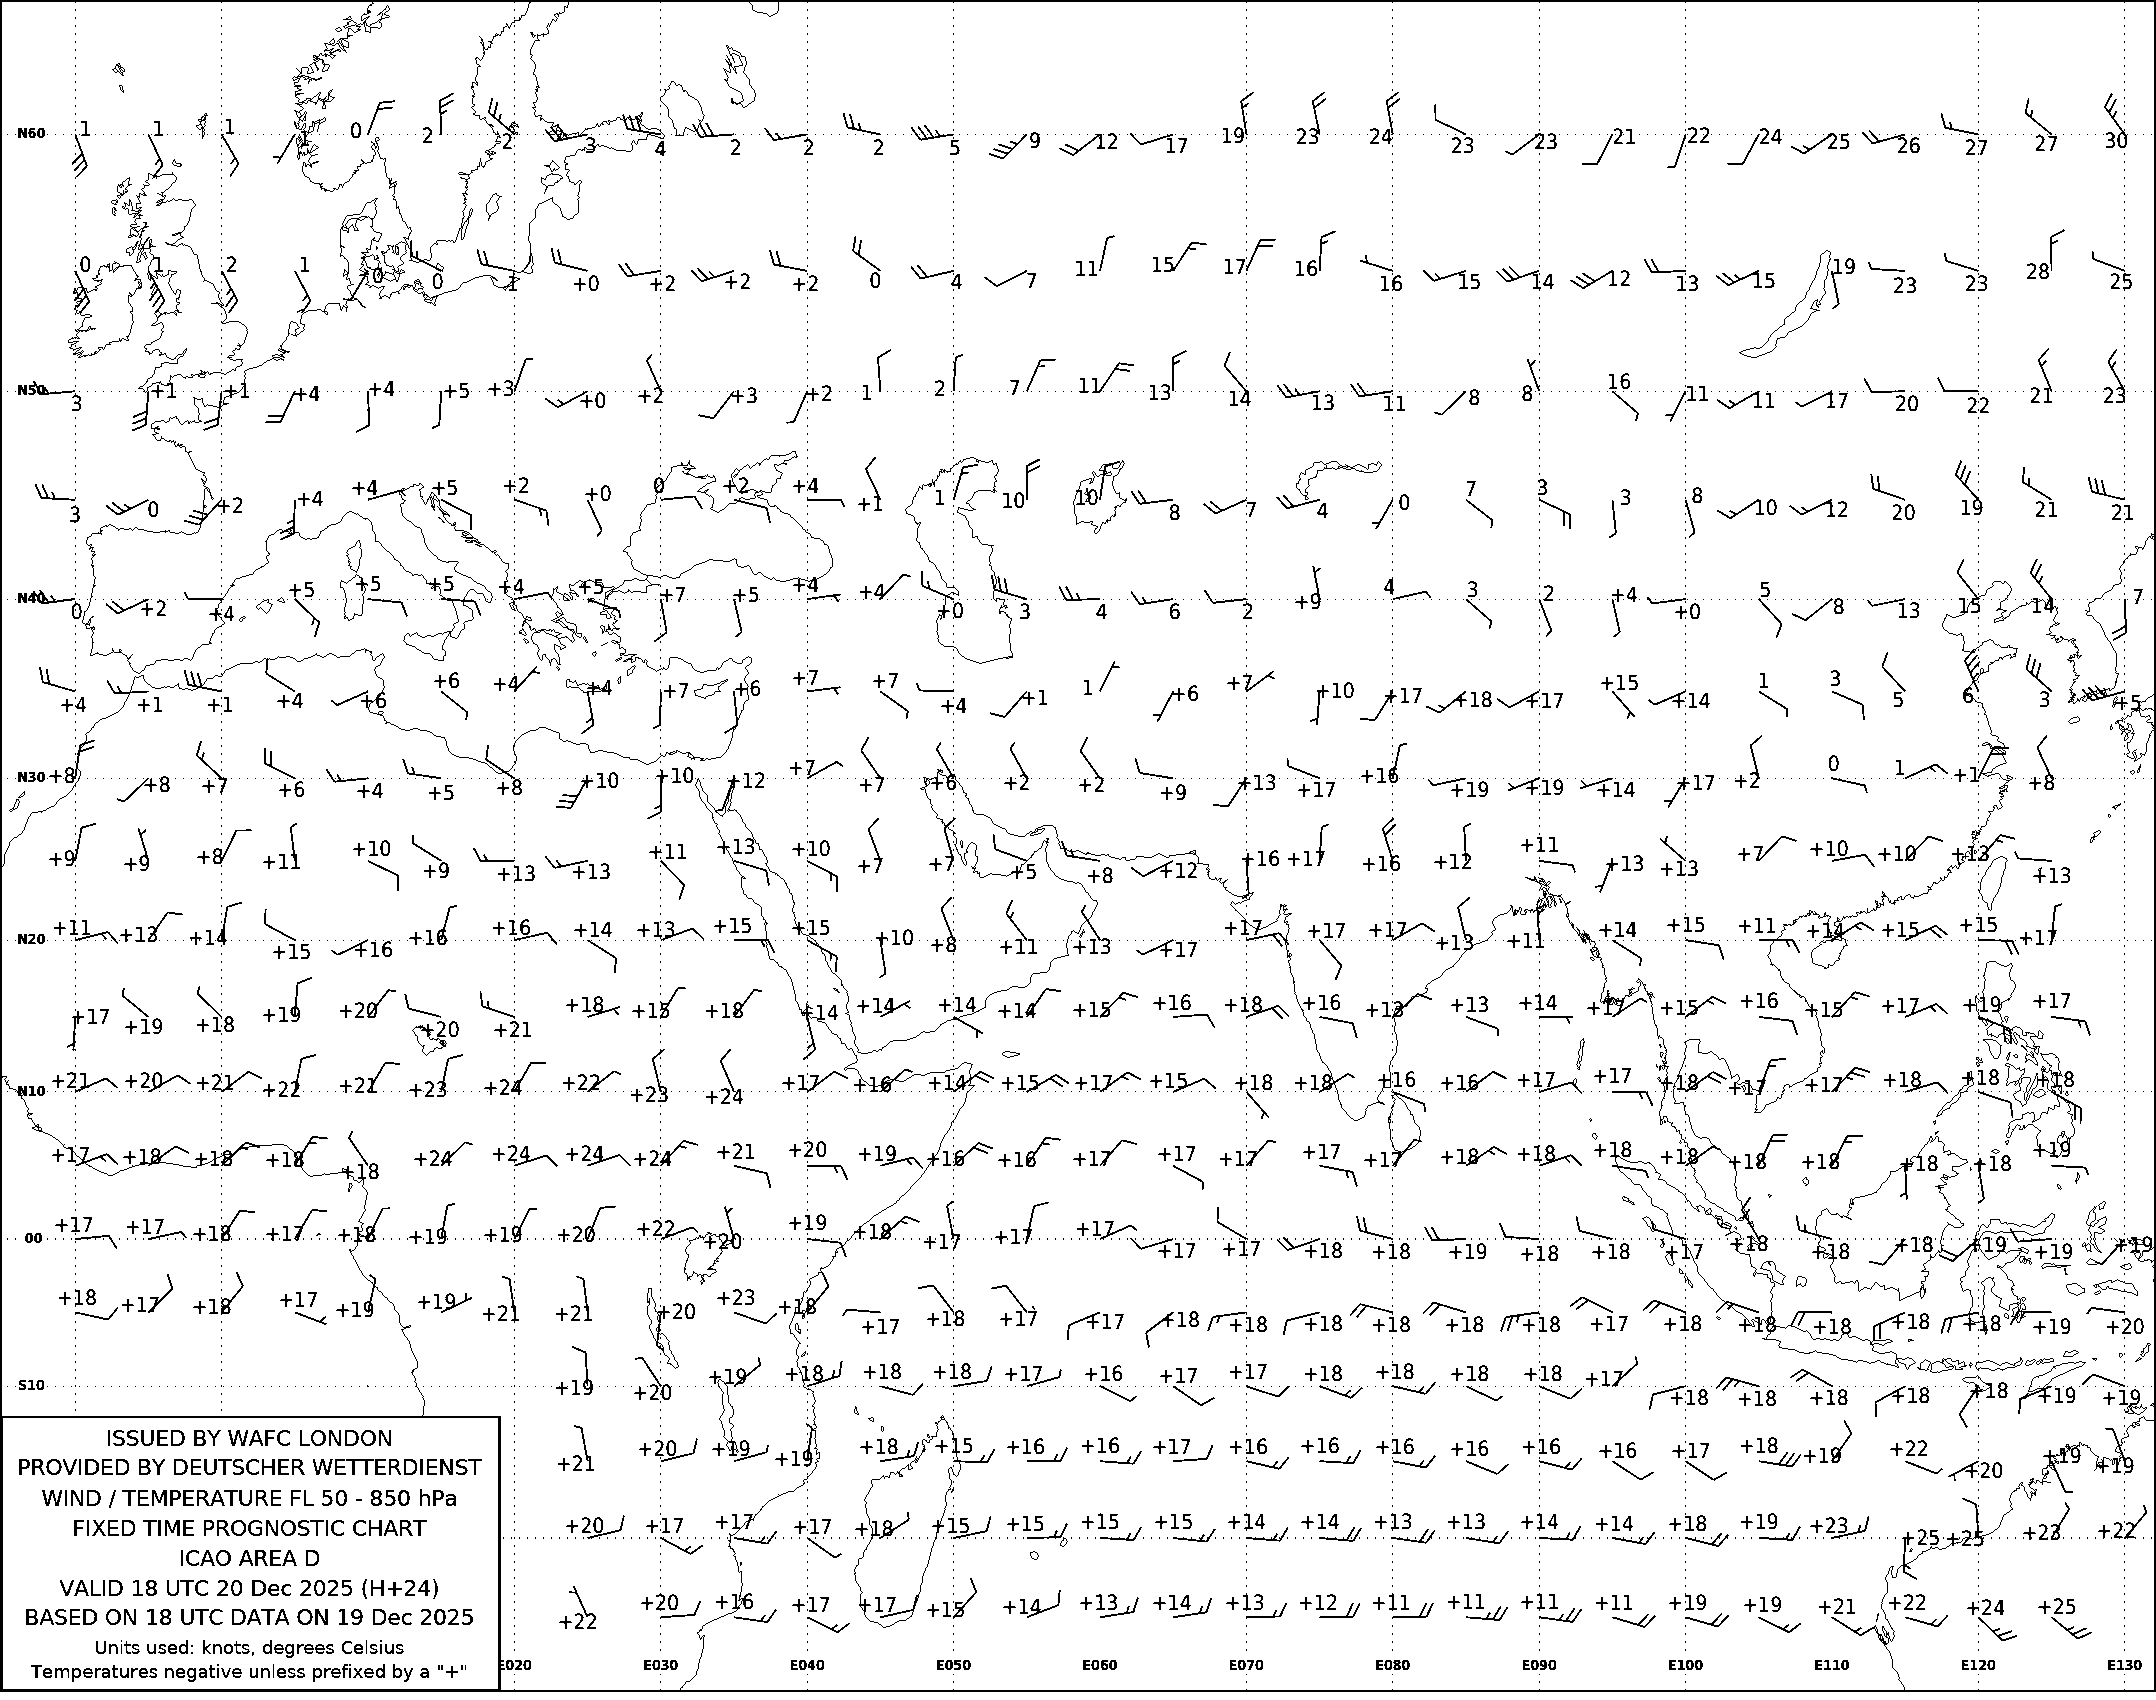 N60 1 1 1 0 2 2 3 4 2 2 2 5 9 12 17 19 23 24 23 23 21 22 24 25 26 27 27 30
0 1 2 1 0 0 1 +0 +2 +2 +2 0 4 7 11 15 17 16 16 15 14 12 13 15 19 23 23 28 25
N50 3 +1 +1 +4 +4 +5 +3 +0 +2 +3 +2 1 2 7 11 13 14 13 11 8 8 16 11 11 17 20 22 21 23
3 0 +2 +4 +4 +5 +2 +0 0 +2 +4 +1 1 10 10 8 7 4 0 7 3 3 8 10 12 20 19 21 21
N40 0 +2 +4 +5 +5 +5 +4 +5 +7 +5 +4 +4 +0 3 4 6 2 +9 4 3 2 +4 +0 5 8 13 15 14 7
+4 +1 +1 +4 +6 +6 +4 +4 +7 +6 +7 +7 +4 +1 1 +6 +7 +10 +17 +18 +17 +15 +14 1 3 5 6 3 +5
N30 +8 +8 +7 +6 +4 +5 +8 +10 +10 +12 +7 +7 +6 +2 +2 +9 +13 +17 +16 +19 +19 +14 +17 +2 0 1 +1 +8
+9 +9 +8 +11 +10 +9 +13 +13 +11 +13 +10 +7 +7 +5 +8 +12 +16 +17 +16 +12 +11 +13 +13 +7 +10 +10 +13 +13
N20 +11 +13 +14 +15 +16 +16 +16 +14 +13 +15 +15 +10 +8 +11 +13 +17 +17 +17 +17 +13 +11 +14 +15 +11 +14 +15 +15 +17
+17 +19 +18 +19 +20 +20 +21 +18 +15 +18 +14 +14 +14 +14 +15 +16 +18 +16 +13 +13 +14 +17 +15 +16 +15 +17 +19 +17
N10 +21 +20 +21 +22 +21 +23 +24 +22 +23 +24 +17 +16 +14 +15 +17 +15 +18 +18 +16 +16 +17 +17 +18 +17 +17 +18 +18 +18
+17 +18 +18 +18 +18 +24 +24 +24 +24 +21 +20 +19 +16 +16 +17 +17 +17 +17 +17 +18 +18 +18 +18 +18 +18 +18 +18 +19
00 +17 +17 +18 +17 +18 +19 +19 +20 +22 +20 +19 +18 +17 +17 +17 +17 +17 +18 +18 +19 +18 +18 +17 +18 +18 +18 +19 +19 +19
+18 +17 +18 +17 +19 +19 +21 +21 +20 +23 +18 +17 +18 +17 +17 +18 +18 +18 +18 +18 +18 +17 +18 +18 +18 +18 +18 +19 +20
S10 +19 +20 +19 +18 +18 +18 +17 +16 +17 +17 +18 +18 +18 +18 +17 +18 +18 +18 +18 +18 +19 +19
+21 +20 +19 +19 +18 +15 +16 +16 +17 +16 +16 +16 +16 +16 +16 +17 +18 +19 +22 +20 +19 +19
+20 +17 +17 +17 +18 +15 +15 +15 +15 +14 +14 +13 +13 +14 +14 +18 +19 +23 +25 +25 +23 +22
+22 +20 +16 +17 +17 +15 +14 +13 +14 +13 +12 +11 +11 +11 +11 +19 +19 +21 +22 +24 +25
ISSUED BY WAFC LONDON
PROVIDED BY DEUTSCHER WETTERDIENST
WIND / TEMPERATURE FL 50 - 850 hPa
FIXED TIME PROGNOSTIC CHART
ICAO AREA D
VALID 18 UTC 20 Dec 2025 (H+24)
BASED ON 18 UTC DATA ON 19 Dec 2025
Units used: knots, degrees Celsius
Temperatures negative unless prefixed by a "+"
E020 E030 E040 E050 E060 E070 E080 E090 E100 E110 E120 E130